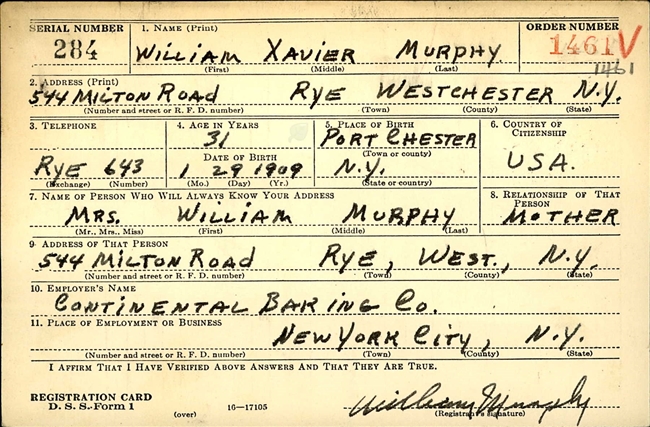 SERIAL NUMBER 1. NAME (Print) ORDER NUMBER
284 WILLIAM XAVIER MURPHY 1461 V
(First) (Middle) (Last) 1461
2. ADDRESS (Print)
544 MILTON ROAD RYE WESTCHESTER N.Y.
(Number and street or R. F. D. number) (Town) (County) (State)
3. TELEPHONE 4. AGE IN YEARS 5. PLACE OF BIRTH 6. COUNTRY OF
31 PORT CHESTER CITIZENSHIP
DATE OF BIRTH (Town or county)
RYE 643 1 29 1909 N.Y. USA.
(Exchange) (Number) (Mo.) (Day) (Yr.) (State or country)
7. NAME OF PERSON WHO WILL ALWAYS KNOW YOUR ADDRESS 8. RELATIONSHIP OF THAT
PERSON
MRS. WILLIAM MURPHY MOTHER
(Mr., Mrs., Miss) (First) (Middle) (Last)
9. ADDRESS OF THAT PERSON
544 MILTON ROAD RYE, WEST., N.Y.
(Number and street or R. F. D. number) (Town) (County) (State)
10. EMPLOYER'S NAME
CONTINENTAL BAKING CO.
11. PLACE OF EMPLOYMENT OR BUSINESS
NEW YORK CITY, N.Y.
(Number and street or R. F. D. number) (Town) (County) (State)
I AFFIRM THAT I HAVE VERIFIED ABOVE ANSWERS AND THAT THEY ARE TRUE.
REGISTRATION CARD
D. S. S. Form 1 William Murphy
(over) 16—17105 (Registrant's signature)